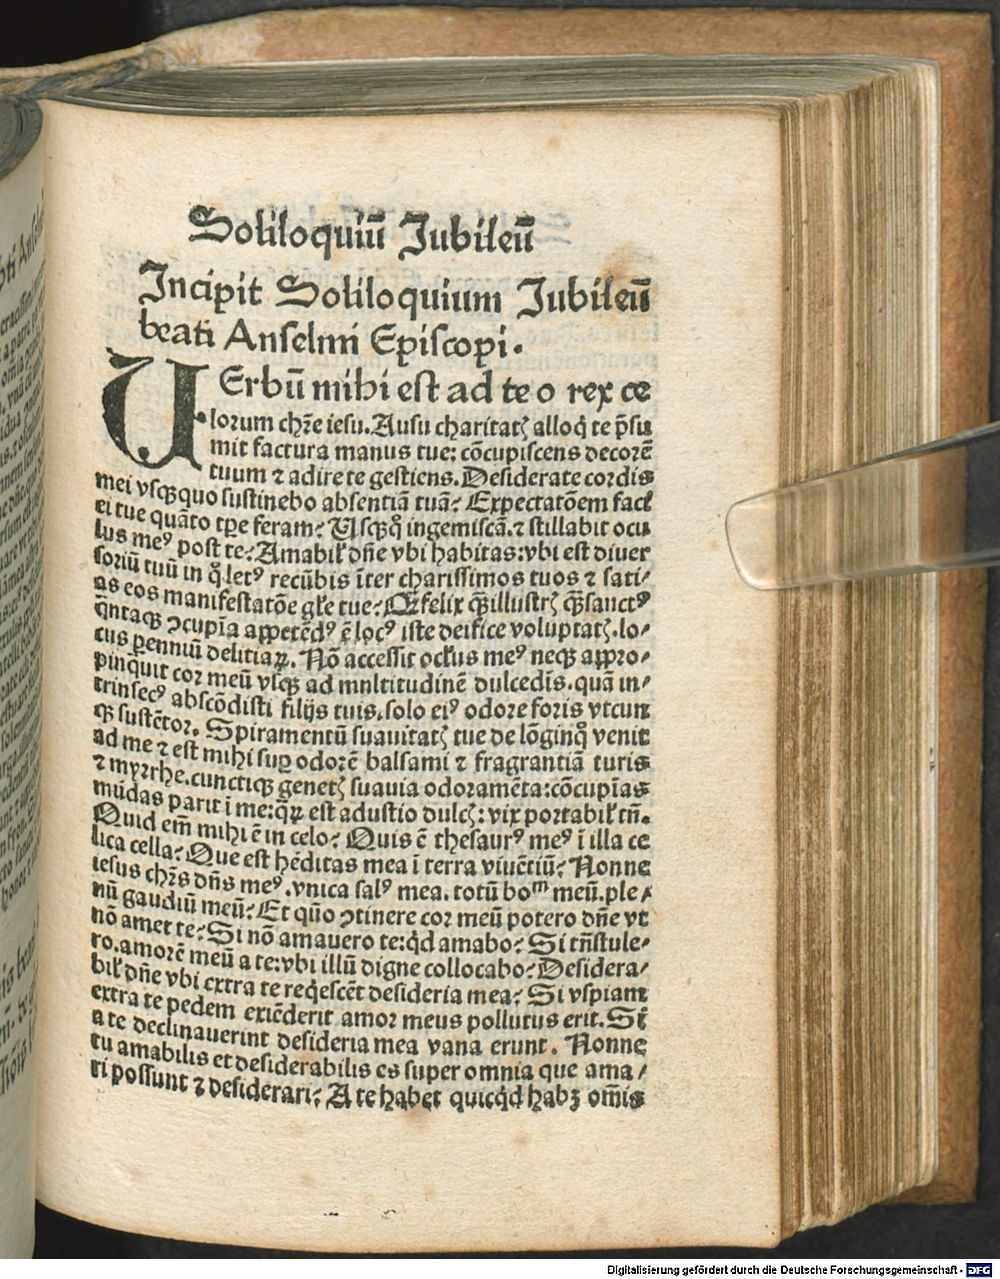 Soliloquiū Jubileū
Incipit Soliloquium Jubileū
beati Anselmi Episcopi.
UErbū mihi est ad te o rex ce
lorum chr̄e iesu. Ausu charitatꝭ alloq̇ te p̄su
mit factura manus tue: cōcupiscens decorē
tuum ⁊ adire te gestiens. Desiderate cordis
mei vsqꝫquo sustinebo absentiā tuā? Expectatōem fact
ei tue quāto tꝑe feram? Vsqꝫq̊ ingemiscā. ⁊ stillabit ocu
lus meꝰ post te? Amabil̵ dn̄e vbi habitas: vbi est diuer
soriū tuū in q̊ letꝰ recūbis īter charissimos tuos ⁊ sati⸗
as eos manifestatōe gl̵e tue? Q̄ felix qꝫ̄ illustrꝭ qꝫ̄ sanctꝰ
q̄ntaqꝫ ↄcupīa appetēdꝰ ē locꝰ iste deifice voluptatꝭ. lo⸗
cus ꝑenniū delitiaꝝ. Nō accessit ocl̵us meꝰ neqꝫ appro⸗
pinq̇uit cor meū vsqꝫ ad mnltitudinē dulcedīs. quā in⸗
trinsecꝰ abscōdisti filijs tuis. solo eiꝰ odore foris vtcun
qꝫ sustētor. Spiramentū suauitatꝭ tue de lōginq̊ venit
ad me ⁊ est mihi suꝑ odorē balsami ⁊ fragrantiā turis
⁊ myrrhe. cunctiqꝫ generꝭ suauia odoramēta: cōcupīas
mūdas parit ī me: q̄ꝝ est adustio dulcꝭ: vix portabil̵ tn̄.
Quid em̄ mihi ē in celo? Quis ē thesaurꝰ meꝰ ī illa ce
lica cella? Que est hēditas mea ī terra viuētiū? Nonne
iesus chr̄s dn̄s meꝰ. vnica salꝰ mea. totū boᵐ meū. ple⸗
nū gaudiū meū? Et quō ↄtinere cor meū potero dn̄e vt
nō amet te? Si nō amauero te: qd̓ amabo? Si tn̄stule⸗
ro. amorē meū a te: vbi illū digne collocabo? Desidera⸗
bil̵ dn̄e vbi extra te reqͥescēt desideria mea? Si vspiam
extra te pedem extēderit amor meus pollutus erit. Si
a te declinauerint desideria mea vana erunt. Nonne
tu amabilis et desiderabilis es super omnia que ama⸗
ri possunt ⁊ desiderari? A te habet quicqd̓ habꝫ om̄is
Digitalisierung gefördert durch die Deutsche Forschungsgemeinschaft - DFG